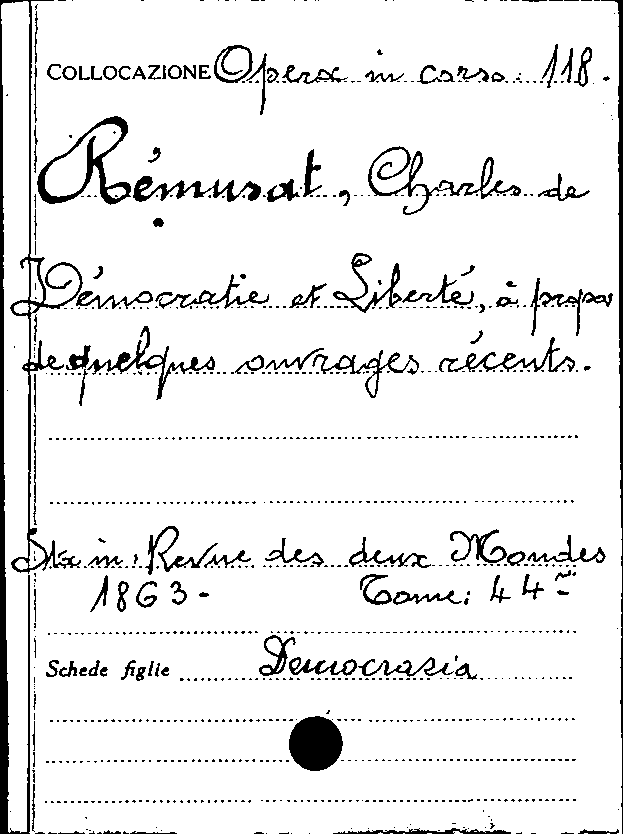 COLLOCAZIONE Opera in corso. 118.
Rémusat, Charles de
Démocratie et Liberté, à propos
de quelques ouvrages récents.
Sta in: Revue des deux Mondes
1863. Tome: 44me
Schede figlie Democrazia